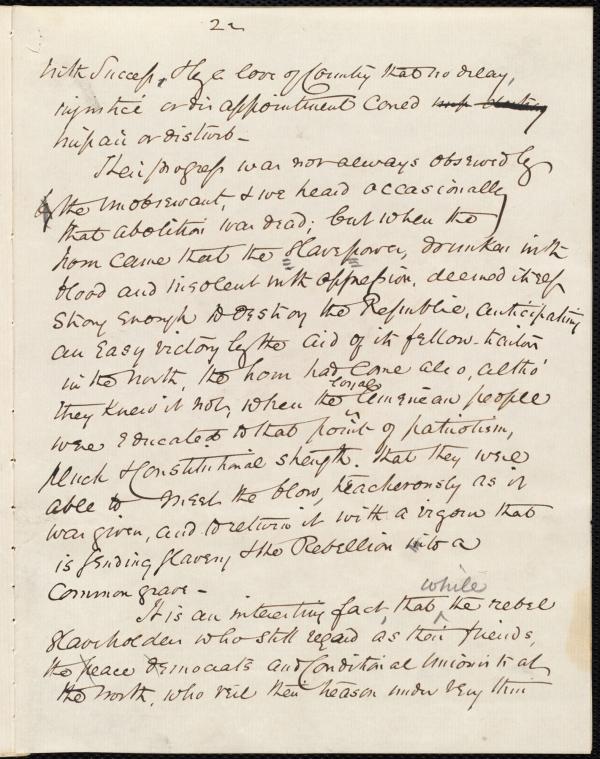 22
with success, & by a love of Country that no delay,
injustice or disappointment could
impair or disturb -
Their progress was not always observed by
the unobservant, & we heard occasionally
that abolition was dead; but when the
hour came that the slave power, drunken with
blood and insolent with oppression, deemed itself
strong enough to destroy the Republic, anticipating
an easy victory by the aid of its fellow-traitors
in the North, the hour had come also, altho'
they knew it not, when the loyal American people
were educated to that point of patriotism,
pluck & Constitutional strength. that they were
able to meet the blow, treacherously as it
was given, and to return it with a vigour that
is sending slavery & the Rebellion into a
Common grave -
It is an interesting fact, that while the rebel
slaveholders who still regard as their friends,
the peace democrats and Conditional Unionists at
the North, who veil their treason under very thin